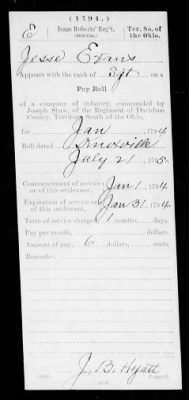 (1794.)
E Isaac Roberts' Reg't. Ter. So. of
(Militia.) the Ohio.
Jesse Evans
Appears with the rank of Sgt on a
Pay Roll
of a company of infantry, commanded by
Joseph Shaw, of the Regiment of Davidson
County, Territory South of the Ohio,
for Jan , 1794
Roll dated Knoxville
July 21 , 1795
Commencement of service
or of this settlement, Jan 1 , 1794
Expiration of service
or of this settlement, Jan 31 , 1794
Term of service charged 1 months, days.
Pay per month, dollars, cents.
Amount of pay, 6 dollars, cents.
Remarks:
J. B. Hyatt
Copyist.